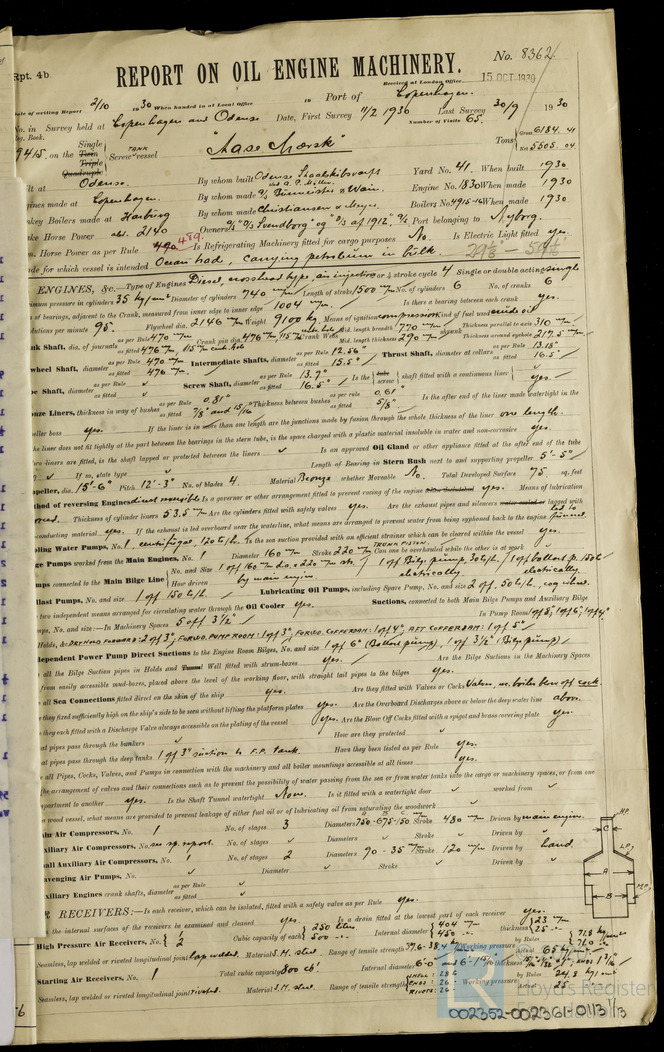 Rpt. 4b.
No. 8362
REPORT ON OIL ENGINE MACHINERY.
Received at London Office
15 OCT 1930
Date of writing Report 2/10 1930 When handed in at Local Office 19 Port of Copenhagen.
No. in Survey held at Copenhagen and Odense Date, First Survey 11/2 1930 Last Survey 30/9 1930
Reg. Book. Number of Visits 65.
9415. on the Single Twin Triple Quadruple Screw vessel TANK "Aase Maersk" Tons Gross 6184.41 Net 5505.04
Built at Odense. By whom built Odense Staalskibsværft Yard No. 41. When built 1930
Engines made at Copenhagen. By whom made A/S Burmeister & Wain. Engine No. 1830 When made 1930
Donkey Boilers made at Harburg By whom made Christiansen & Meyer Boiler No. 4915-16 When made 1930
Brake Horse Power 2140 Owners A/S "D/S Svendborg" og "D/S af 1912" A/S Port belonging to Nyborg.
Nom. Horse Power as per Rule 490 489. Is Refrigerating Machinery fitted for cargo purposes No. Is Electric Light fitted yes.
Trade for which vessel is intended Ocean trade, carrying petroleum in bulk.
ENGINES, &c.—Type of Engines Diesel, crosshead type, air injection 2 or 4 stroke cycle 4 Single or double acting single
Maximum pressure in cylinders 35 kg/cm² Diameter of cylinders 740 m/m Length of stroke 1500 m/m No. of cylinders 6 No. of cranks 6
of bearings, adjacent to the Crank, measured from inner edge to inner edge 1004 m/m Is there a bearing between each crank yes.
Revolutions per minute 95. Flywheel dia. 2146 m/m Weight 9100 kg Means of ignition compression Kind of fuel used crude oil
Crank Shaft, dia. of journals as per Rule 470 m/m as fitted 476 m/m, 115 m/m cent. hole Crank pin dia. 476 m/m, 115 m/m Crank Webs Mid. length breadth 770 m/m Mid. length thickness 290 m/m shrunk Thickness parallel to axis 310 m/m Thickness around eyehole 217.5 m/m
Flywheel Shaft, diameter as per Rule 470 m/m as fitted 476 m/m. Intermediate Shafts, diameter as per Rule 12.56" as fitted 15.5" Thrust Shaft, diameter at collars as per Rule 13.18" as fitted 16.5"
Tube Shaft, diameter as per Rule as fitted Screw Shaft, diameter as per Rule 13.9" as fitted 16.5" Is the tube screw shaft fitted with a continuous liner yes.
Bronze Liners, thickness in way of bushes as per Rule 0,81" as fitted 7/8" and 15/16" Thickness between bushes as per rule 0,61" as fitted 5/8" Is the after end of the liner made watertight in the
propeller boss yes. If the liner is in more than one length are the junctions made by fusion through the whole thickness of the liner one length.
If the liner does not fit tightly at the part between the bearings in the stern tube, is the space charged with a plastic material insoluble in water and non-corrosive yes.
If two liners are fitted, is the shaft lapped or protected between the liners Is an approved Oil Gland or other appliance fitted at the after end of the tube
If so, state type Length of Bearing in Stern Bush next to and supporting propeller 5'-5"
Propeller, dia. 15'-6" Pitch 12'-3" No. of blades 4. Material Bronze whether Moveable No. Total Developed Surface 75 sq. feet
Method of reversing Engines direct reversible Is a governor or other arrangement fitted to prevent racing of the engine yes. Means of lubrication
forced. Thickness of cylinder liners 53.5 m/m Are the cylinders fitted with safety valves yes. Are the exhaust pipes and silencers water cooled or lagged with
non-conducting material yes. If the exhaust is led overboard near the waterline, what means are arranged to prevent water being syphoned back to the engine led to funnel.
Cooling Water Pumps, No. 1 centrifugal, 120 t/h. Is the sea suction provided with an efficient strainer which can be cleared within the vessel yes.
Bilge Pumps worked from the Main Engines, No. 1 Diameter 160 m/m Stroke 220 m/m TRUNK PISTON. Can one be overhauled while the other is at work
Pumps connected to the Main Bilge Line No. and Size 1 off 160 m/m dia. x 220 m/m str. 1 off Bilge pump, 30 t/h. 1 off ballast p. 150 t/h.
How driven by main engine. electrically electrically.
Ballast Pumps, No. and size 1 off 150 t/h. Lubricating Oil Pumps, including Spare Pump, No. and size 2 off, 50 t/h., cog wheel.
Are two independent means arranged for circulating water through the Oil Cooler yes. Suctions, connected to both Main Bilge Pumps and Auxiliary Bilge
Pumps, No. and size:—In Machinery Spaces 5 off 3½" In Pump Room
Holds, &c DRY HOLD FORWARD: 2 off 3"; FORWD. PUMP ROOM: 1 off 3"; FORWD. COFFERDAM: 1 off 4"; AFT COFFERDAM: 1 off 5"
Independent Power Pump Direct Suctions to the Engine Room Bilges, No. and size 1 off 6" (Ballast pump), 1 off 3½" (Bilge pump)
Are all the Bilge Suction pipes in Holds and Tunnel Well fitted with strum-boxes yes. Are the Bilge Suctions in the Machinery Spaces
from easily accessible mud-boxes, placed above the level of the working floor, with straight tail pipes to the bilges yes.
Are all Sea Connections fitted direct on the skin of the ship yes. Are they fitted with Valves or Cocks Valves, ex. boiler blow off cock
Are they fixed sufficiently high on the ship's side to be seen without lifting the platform plates yes. Are the Overboard Discharges above or below the deep water line above.
Are they each fitted with a Discharge Valve always accessible on the plating of the vessel yes. Are the Blow Off Cocks fitted with a spigot and brass covering plate yes.
What pipes pass through the bunkers How are they protected
What pipes pass through the deep tanks 1 off 3" suction to F.P. tank. Have they been tested as per Rule yes.
Are all Pipes, Cocks, Valves, and Pumps in connection with the machinery and all boiler mountings accessible at all times yes.
Is the arrangement of valves and their connections such as to prevent the possibility of water passing from the sea or from water tanks into the cargo or machinery spaces, or from one
compartment to another yes. Is the Shaft Tunnel watertight None. Is it fitted with a watertight door worked from
If a wood vessel, what means are provided to prevent leakage of either fuel oil or of lubricating oil from saturating the woodwork
Main Air Compressors, No. 1 No. of stages 3 Diameters 750-675-150 m/m Stroke 480 m/m Driven by main engine.
Auxiliary Air Compressors, No. see sp. report. No. of stages Diameters Stroke Driven by
Small Auxiliary Air Compressors, No. 1 No. of stages 2 Diameters 90 - 35 m/m Stroke 120 m/m Driven by hand.
Scavenging Air Pumps, No. Diameter Stroke Driven by
Auxiliary Engines crank shafts, diameter as per Rule as fitted
AIR RECEIVERS:—Is each receiver, which can be isolated, fitted with a safety valve as per Rule yes.
Can the internal surfaces of the receivers be examined and cleaned yes. Is a drain fitted at the lowest part of each receiver yes.
High Pressure Air Receivers, No. 2 2 Cubic capacity of each 250 litres 500 Internal diameter 404 m/m 450 thickness 23 m/m 25
Seamless, lap welded or riveted longitudinal joint lap welded. Material S.M. steel. Range of tensile strength Working pressure by Rules 71.8 kg/cm² 71.0 Actual 65 kg/cm²
Starting Air Receivers, No. 1 Total cubic capacity 800 cb' Internal diameter
Seamless, lap welded or riveted longitudinal joint riveted. Material S.M. steel. Range of tensile strength SHELL: 28 ENDS: 26 RIVETS: 26 Working pressure by Rules 24.8 kg/cm² Actual 25
H.P.
C
L.P.
A
B
M.P.
Lloyd's Register
Foundation
002352-002361-0113 1/3